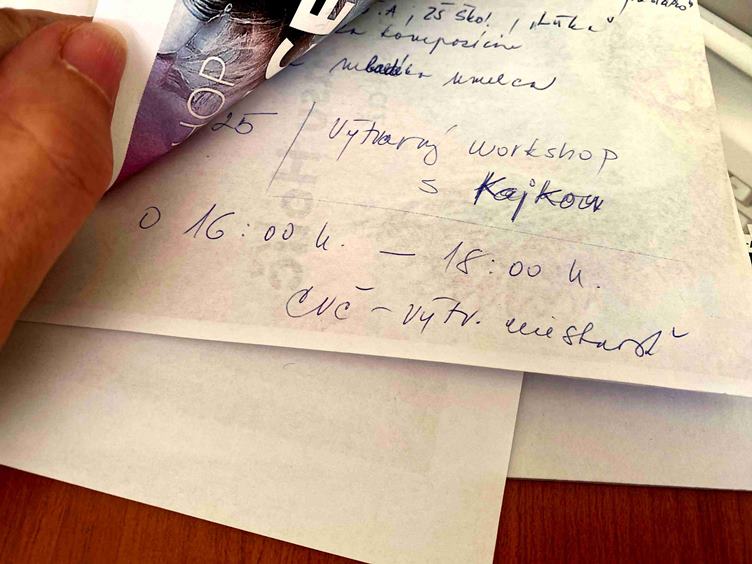 .A, ZŠ ško!, „Lúka"
kompozície
mladého umelca
YOP
25 / Výtvarný workshop
s Kajkou
O 16:00 h. – 18:00 h.
CVČ – výtv. miestnosť